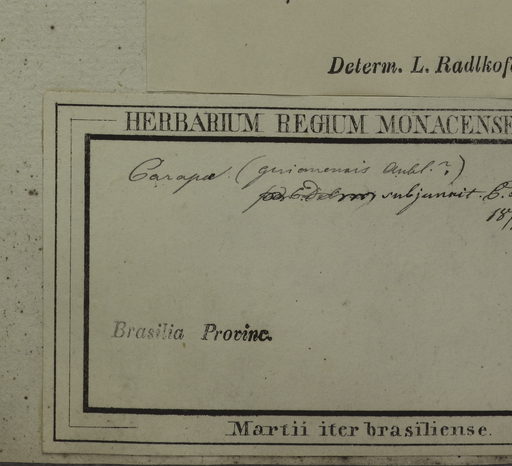 Determ. L. Radlkofe
HERBARIUM REGIUM MONACENSE
Carapa. (guianensis Aubl.?)
subjunxit. C.
18
Brasilia Provinc.
Martii iter brasiliense.